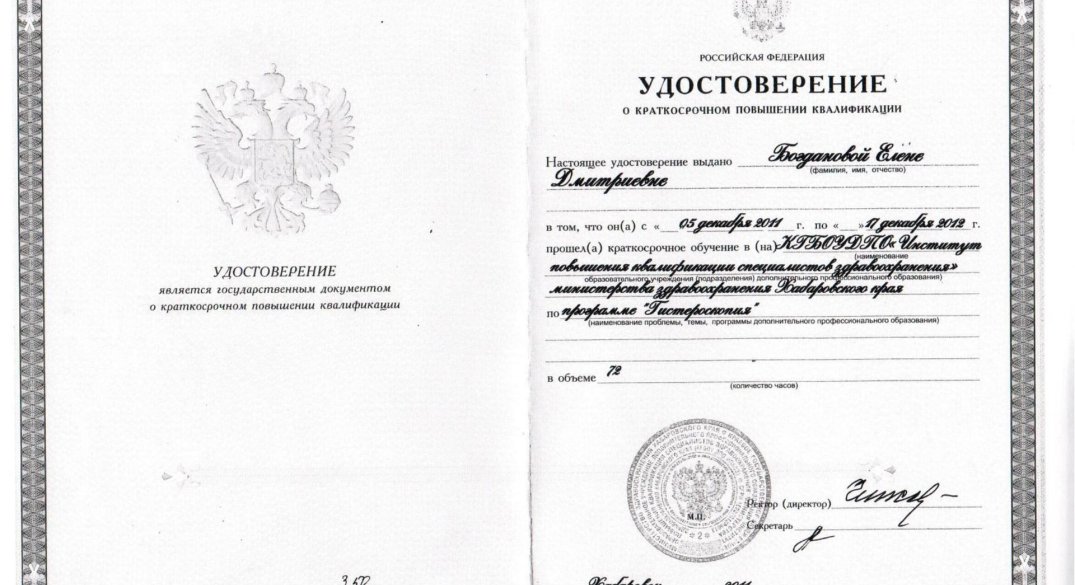 УДОСТОВЕРЕНИЕ
является государственным документом
о краткосрочном повышении квалификации
3 572
РОССИЙСКАЯ ФЕДЕРАЦИЯ
УДОСТОВЕРЕНИЕ
О КРАТКОСРОЧНОМ ПОВЫШЕНИИ КВАЛИФИКАЦИИ
Настоящее удостоверение выдано Богдановой Елене
(фамилия, имя, отчество)
Дмитриевне
в том, что он(а) с « 05 декабря 2011 г. по « » 17 декабря 2012 г.
прошел(а) краткосрочное обучение в (на) КГБОУДПО« Институт
(наименование
повышения квалификации специалистов здравоохранения»
образовательного учреждения (подразделения) дополнительного профессионального образования)
министерства здравоохранения Хабаровского края
по программе "Гистероскопия"
(наименование проблемы, темы, программы дополнительного профессионального образования)
в объеме 72
(количество часов)
М.П.
Ректор (директор)
Секретарь
2011